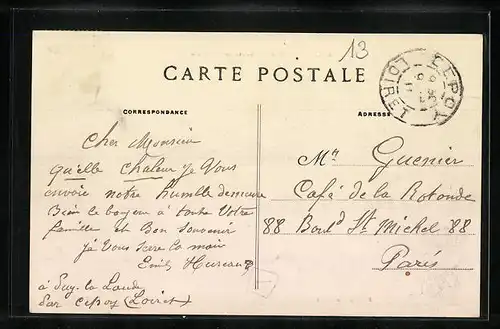 13
CARTE POSTALE
CEPOY
LOIRET
CORRESPONDANCE
ADRESSE
Cher Monsieur
qu'elle chaleur je Vous
envoie notre humble demeure
Bien le bonjou à toute Votre
famille et Bon Souvenir
je Vous serre la main
Emile Hureau
à Puy-la-Laude
Par Cepoy (Loiret)
Mr Guenier
Café de la Rotonde
88 Boulᵈ St Michel 88
Paris